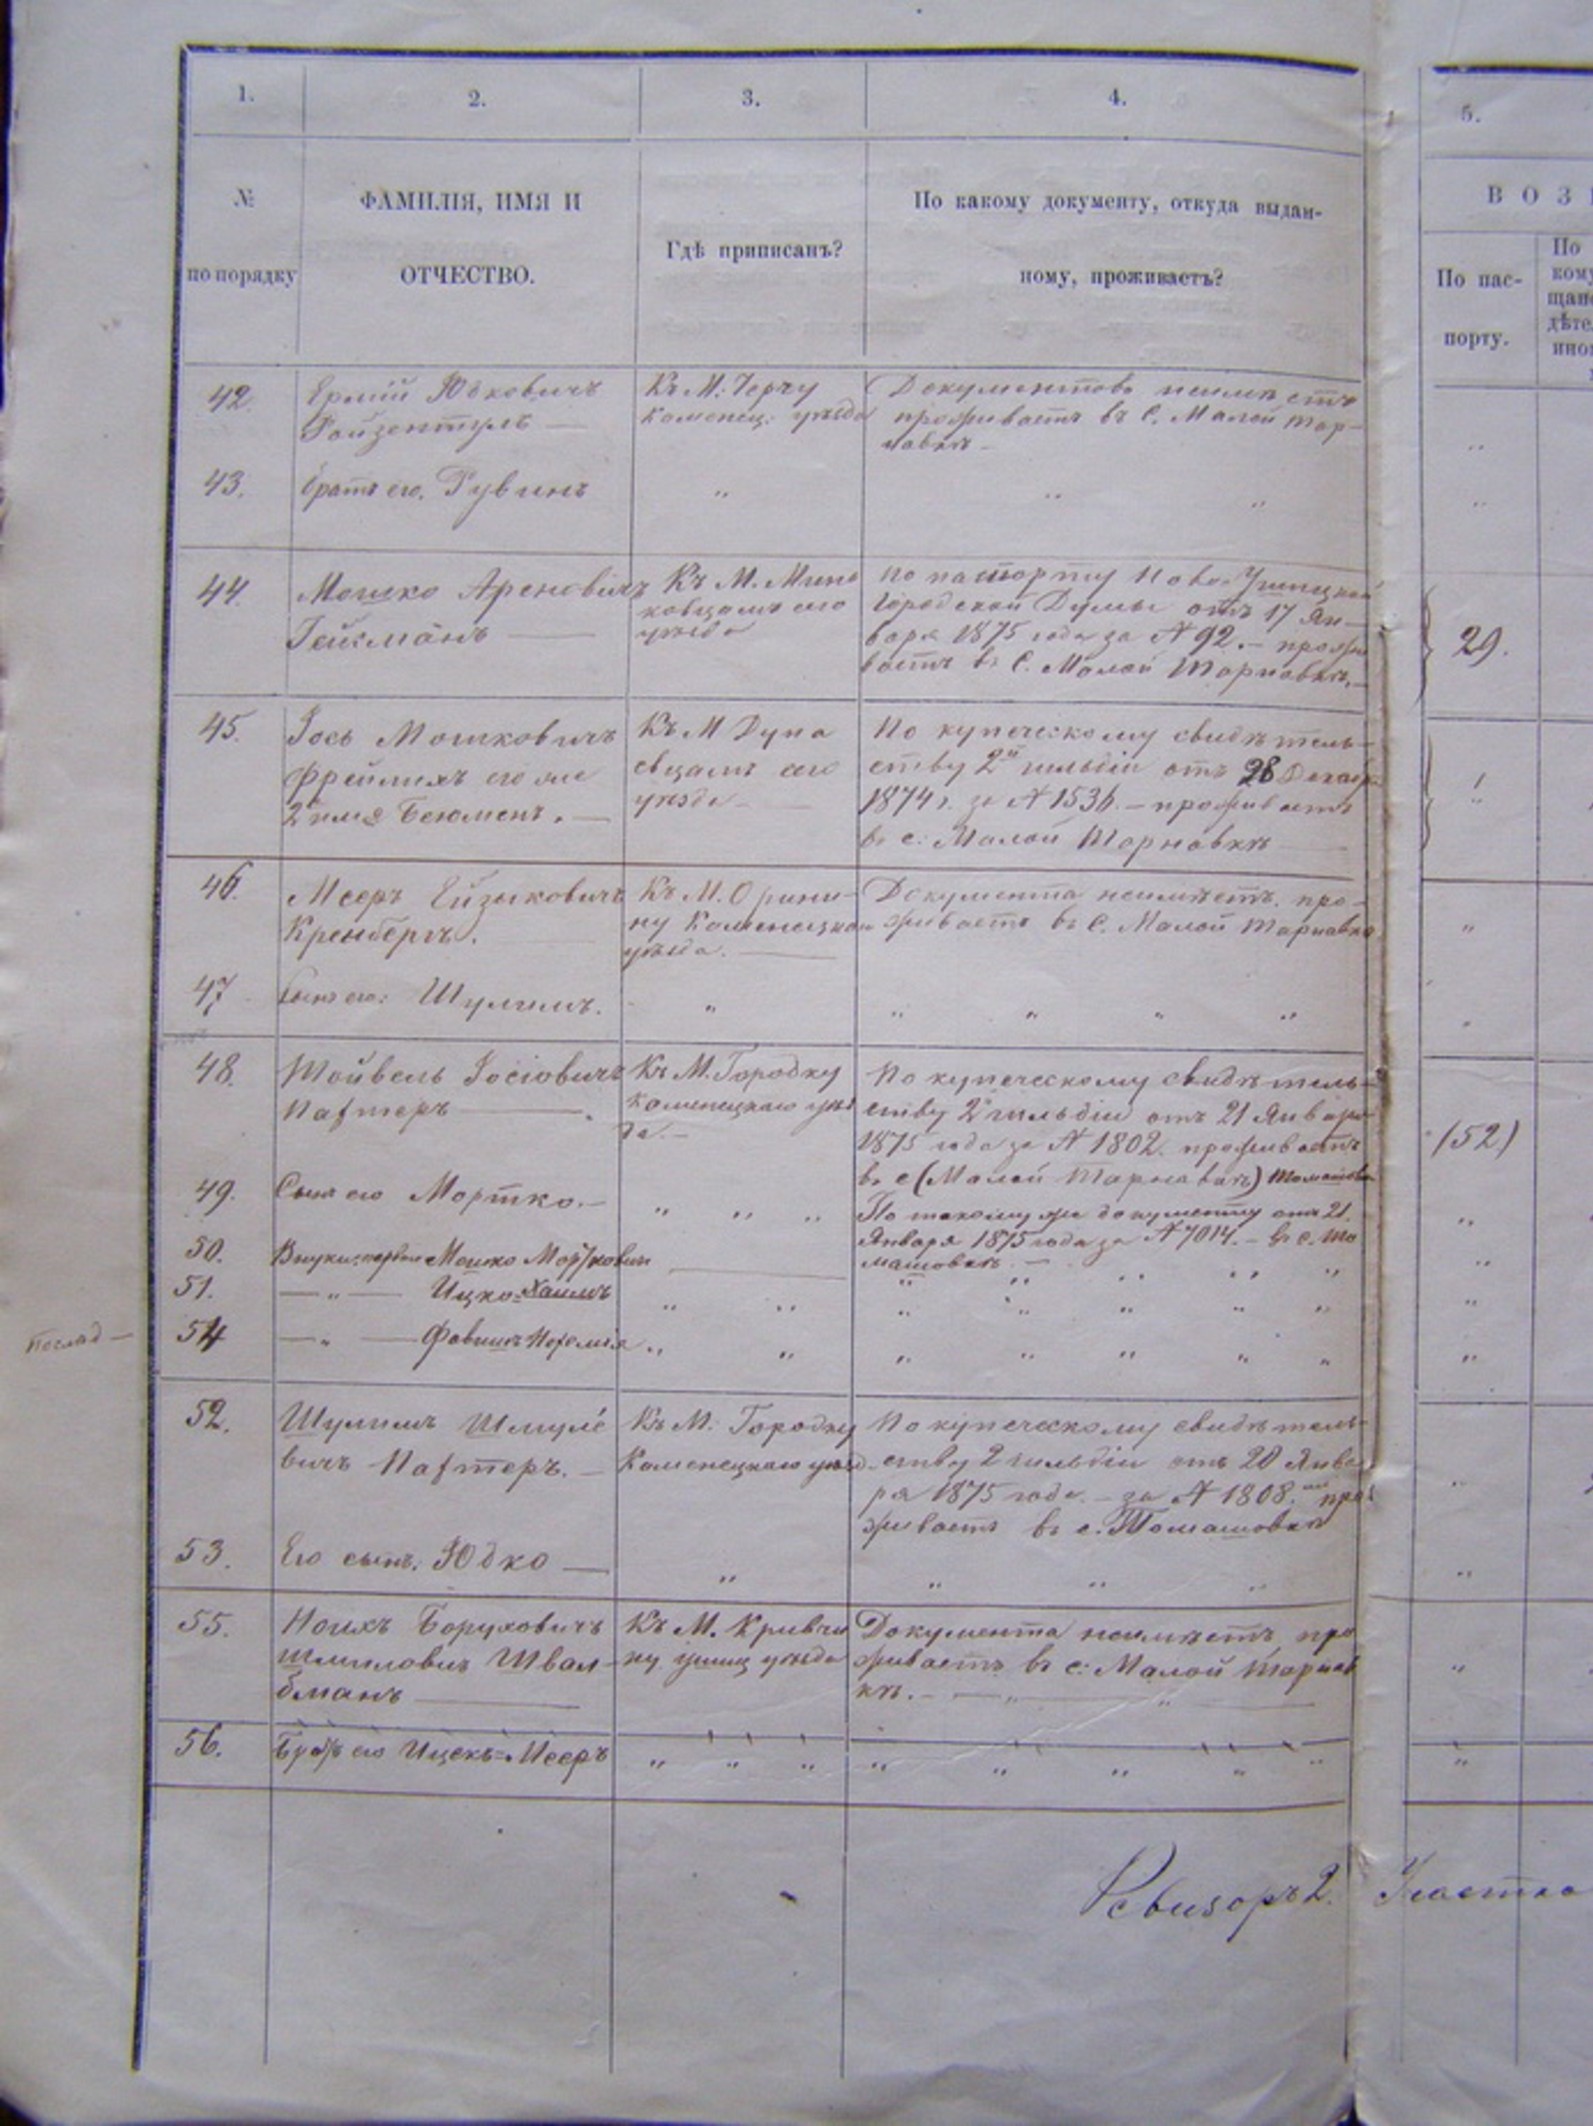 1.
2.
3.
4.
5.
№
по порядку
ФАМИЛІЯ, ИМЯ И
ОТЧЕСТВО.
Гдѣ приписанъ?
По какому документу, откуда выдан-
ному, проживаетъ?
ВОЗ
По пас-
порту.
По
кому
щан
дѣте
ино
42.
Юдковичъ
Къ М: Черчу
каменец: уѣзда
Документовъ неимѣетъ
проживаетъ въ С. Малой Тар-
навкѣ
43.
братъ его. Рувинъ
„
„ „
44.
Мошко Ароновичъ
Гейсманъ
Къ М. Мин
ковцамъ его
уѣзда
По паспорту Ново-Ушицкой
Городской Думы отъ 17 Ян-
варя 1875 года за № 92. – прожи
ваетъ въ С. Малой Тарнавкѣ. –
29.
45.
Іось Мошковичъ
Фрейлихъ его же
Къ М Дуна
евцамъ его
уѣзда –
По купеческому свидѣтель-
ству 2й гильдіи отъ 28 Декаб
1874 г. за № 1536. – проживаетъ
въ с: Малой Тарновкѣ
46.
Мееръ Ейзыковичъ
Кренбергъ.
Къ М. Орини-
ну Каменецкаго
уѣзда.
Документа неимѣетъ. про-
живаетъ въ С. Малой Тарнавкѣ
„
47
Сынъ его: Шулимъ.
„
„ „ „ „
„
48.
Тойвель Іосіовичъ
Пахтеръ
Къ М. Городку
каменецкаго уѣз
да. –
По купеческому свидѣтель-
ству 2й гильдіи отъ 21 Января
1875 года за № 1802. проживаетъ
въ с (Малой Тарнавкѣ) Томашовк
(52)
49.
Сынъ его Мортко. –
„ „ „
По такому же документу отъ 21
Января 1875 года за № 7014. – въ с. То
машовкѣ. –
„
50.
Мошко Мортковичъ
„ „ „ „ „
„
51.
— „ — Ицко-Хаимъ
„ „
„ „ „ „ „
„
54
— „ —
„ „
„ „ „ „ „
„
52.
Шулимъ Шмуле
вичъ Пахтеръ. –
Къ М. Городку
Каменецкаго уѣзд
По купеческому свидѣтель-
ству 2 гильдіи отъ 20 Янва
ря 1875 года. – за № 1808. про
живаетъ въ с. Томашовкѣ
53.
Его сынъ. Юдко —
„
„ „ „
„
55.
Ноихъ Боруховичъ
Шмиловичъ Швал-
бманъ
Къ М. Кривчи
ну ушиц уѣзда
Документа неимѣетъ про
живаетъ въ с: Малой Тарнав
кѣ. –
„
56.
Братъ его Ицекъ-Мееръ
„ „ „
„ „ „ „ „
„
Ревизоръ 2. Участка